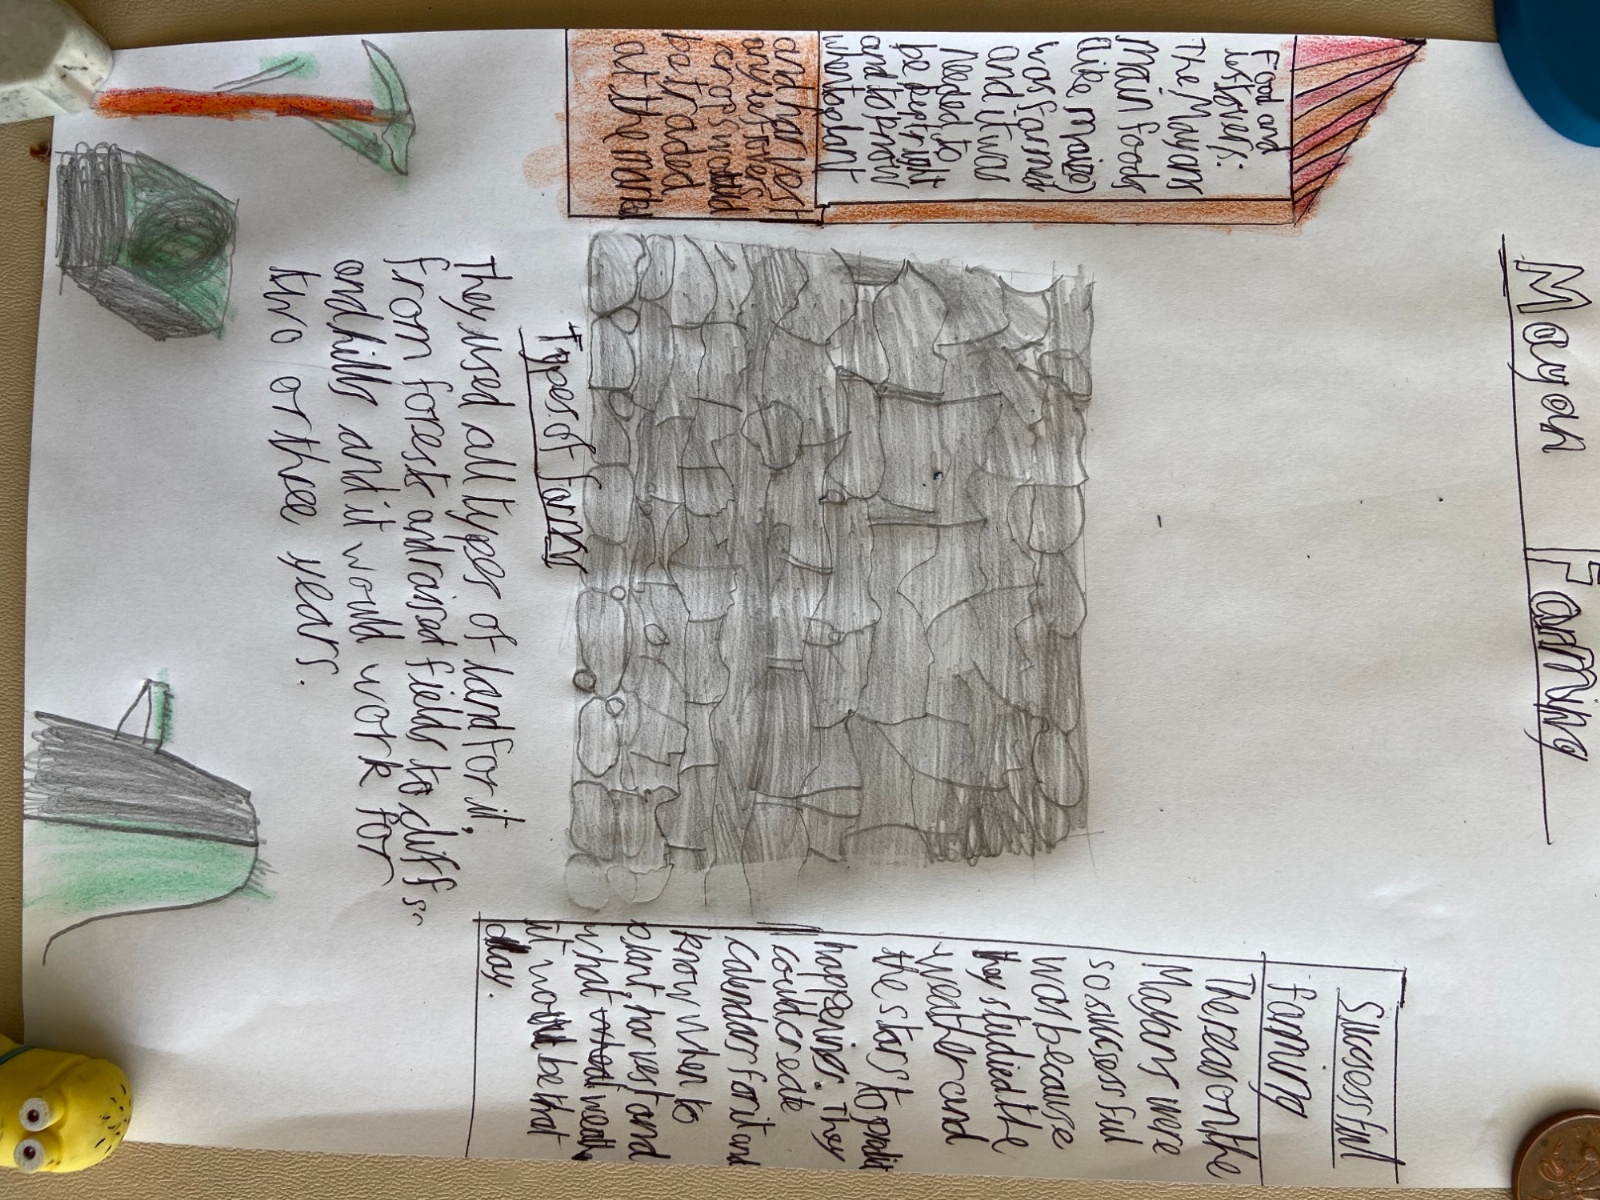 Mayan Farming
Food and
leftovers:
The Mayans
main foods
(like maize)
was farmed
and it was
Needed to
be perfect right
and to know
when to plant
and harvest
any leftovers
crops would
be traded
at the market
Successful
farming
The reason the
Mayans were
so sucsessful
was because
they studied the
weather and
the stars to predict
happenings. They
could create
calendars for it and
know when to
plant, harvest and
what weather
it would be that
day.
Types of farms
They used all types of land for it,
from forests and raised fields to cliffs
and hills and it would work for
two or three years.